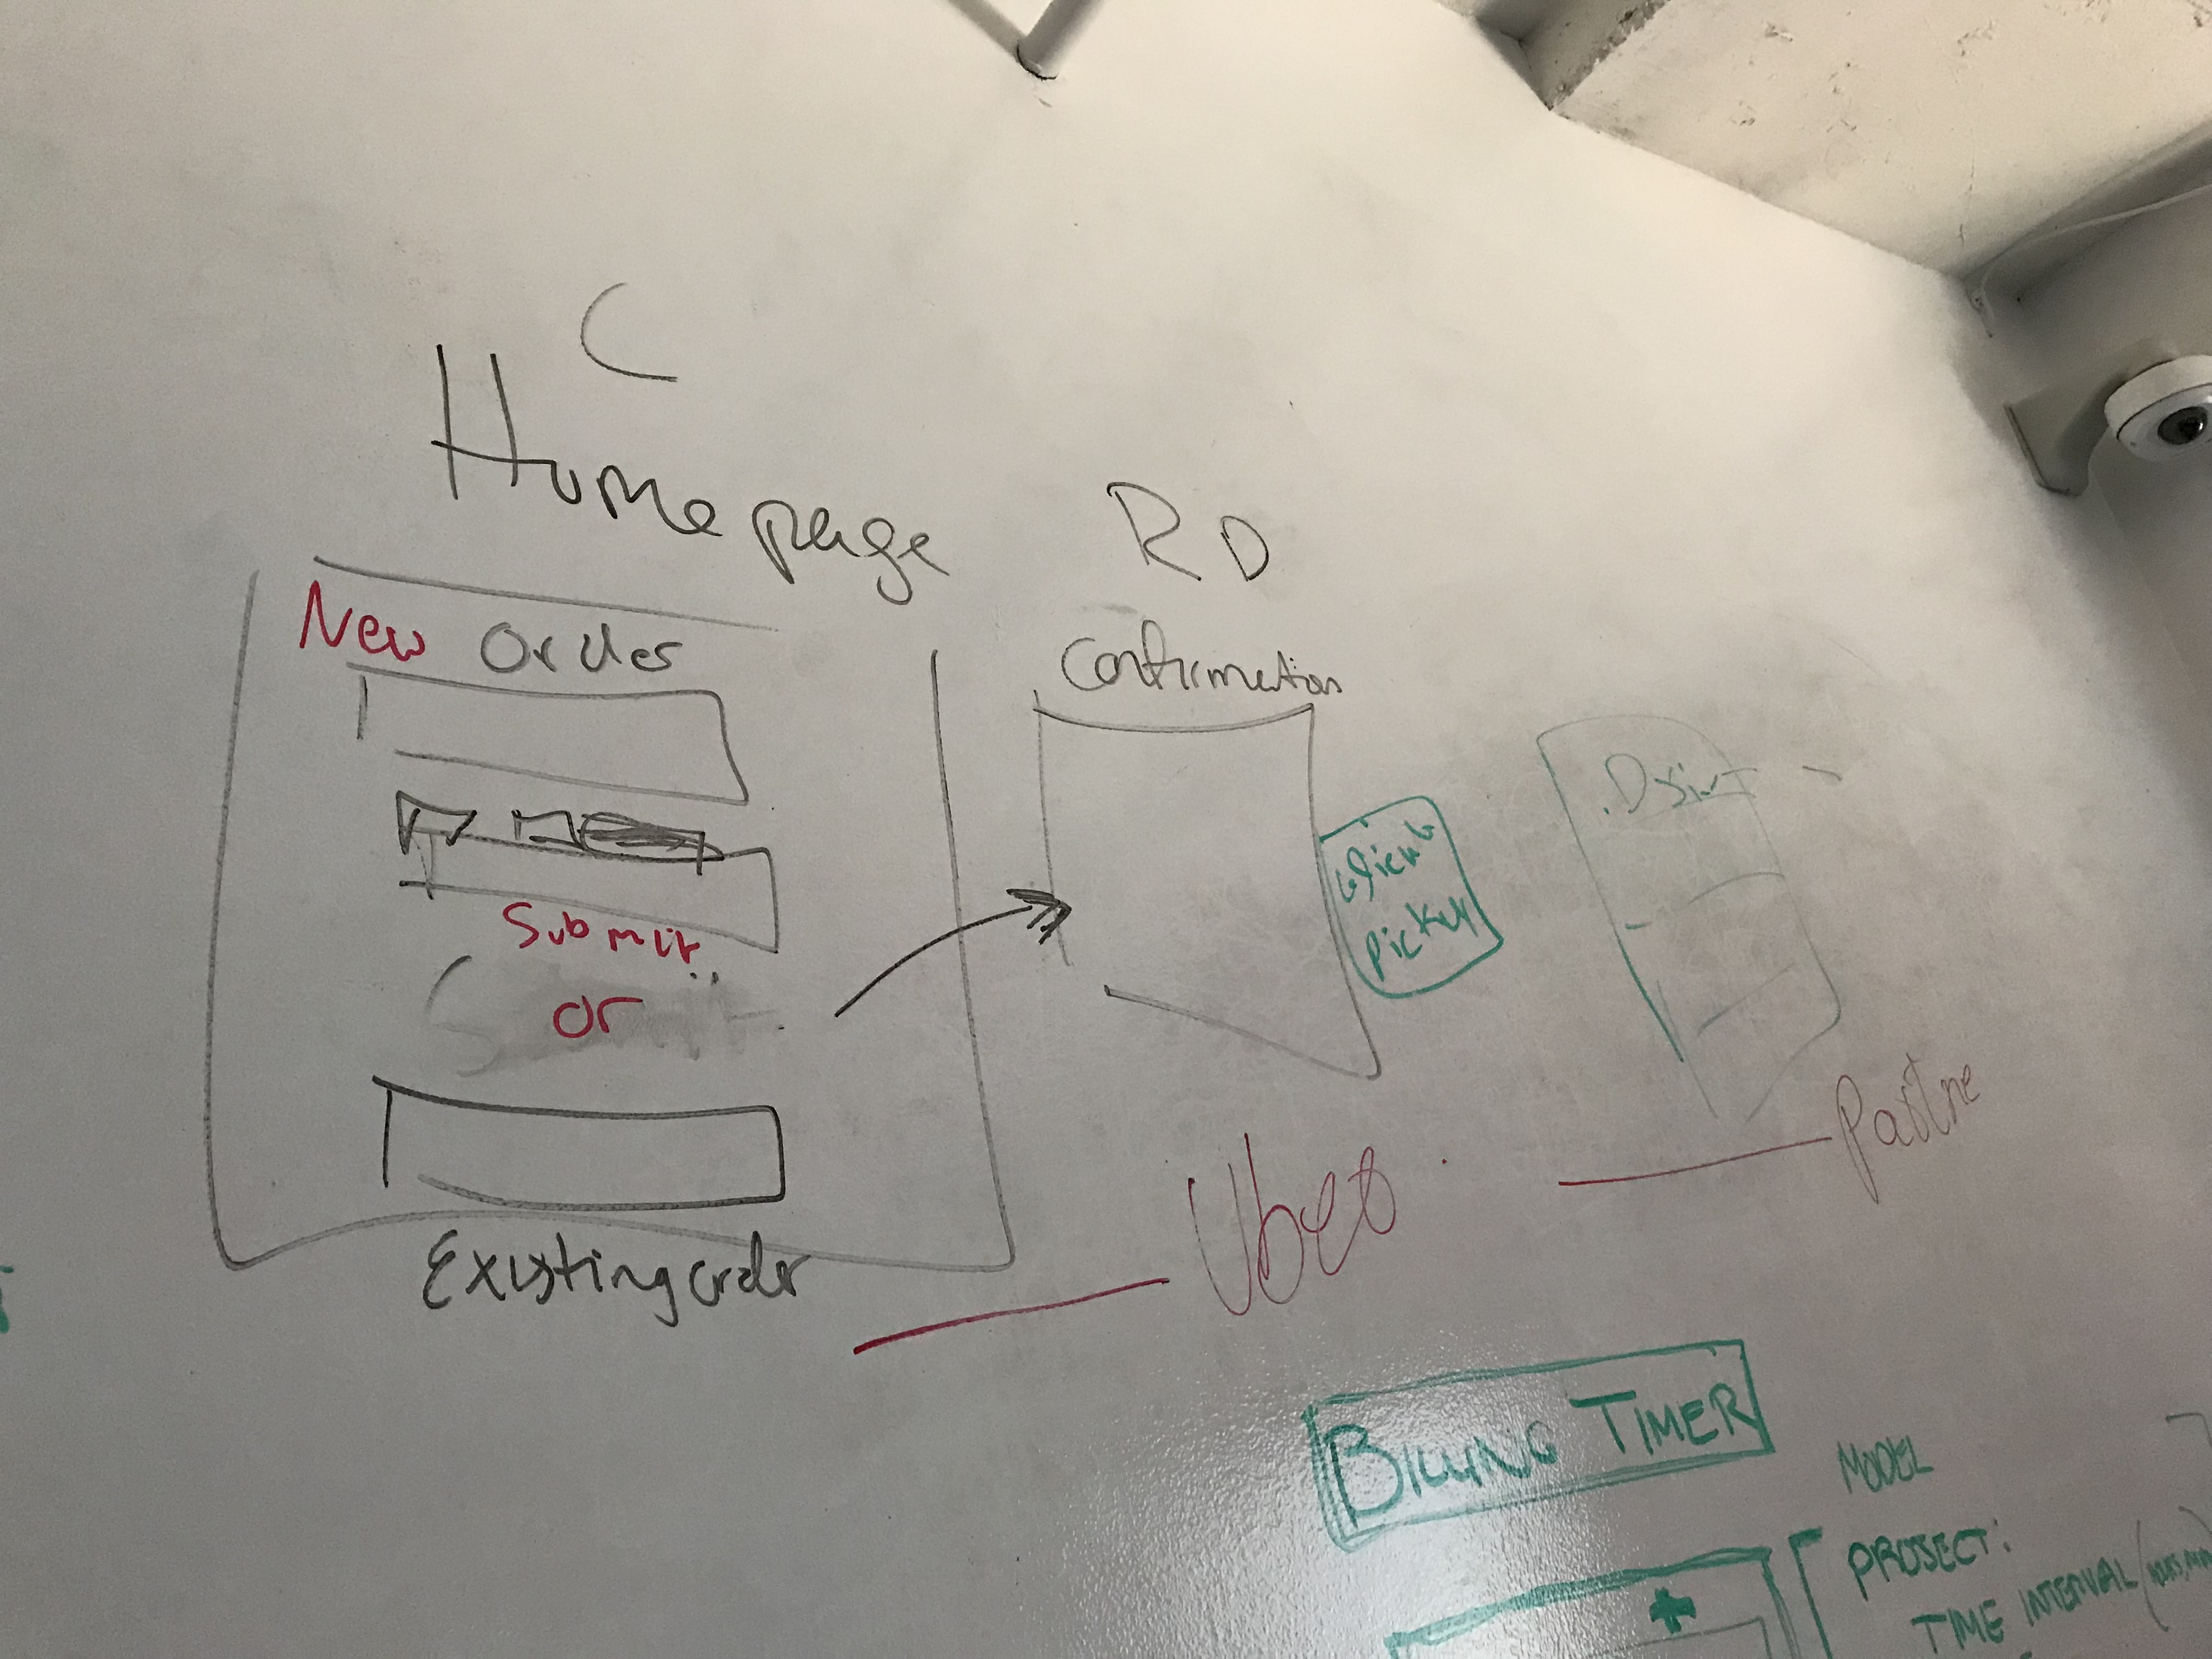 C
Homepage
RD
New Order
Submit
or
Existing order
Confirmation
client
pickup
Uber
Partne
BILLING TIMER
MODEL
PROJECT:
TIME INTERVAL